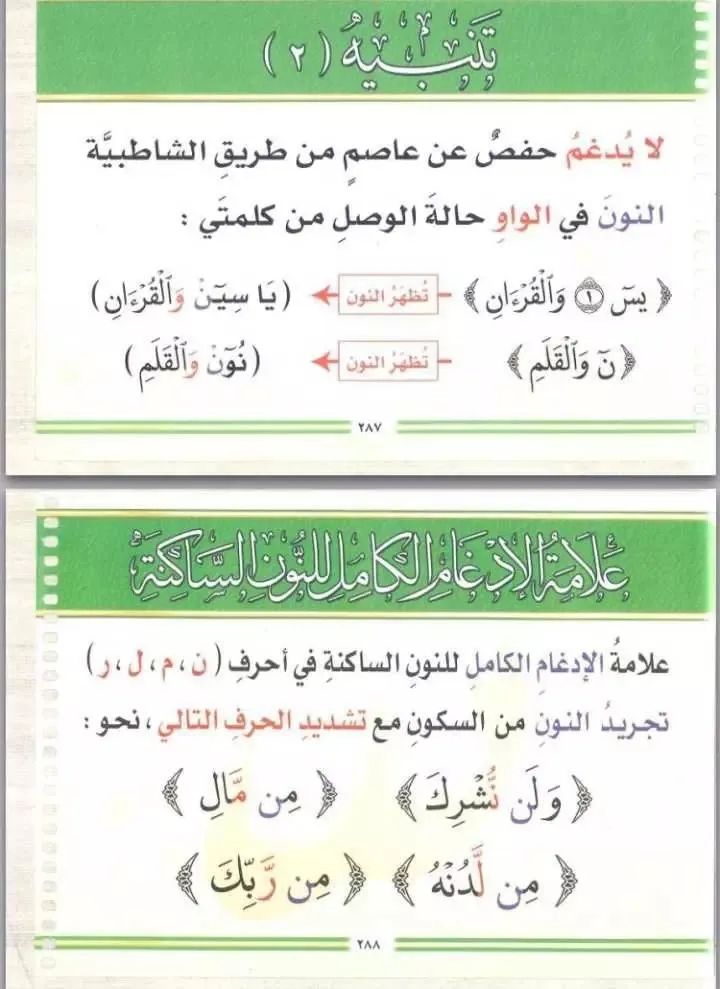 تَنبِيهٌ (٢)
لا يُدغمُ حفصٌ عن عاصمٍ من طريقِ الشاطبيَّة
النونَ في الواوِ حالةَ الوصلِ من كلمتَي :
﴿ يسٓ ۝١ وَٱلْقُرْءَانِ ﴾ تُظهَرُ النون (يَا سِيٓنْ وَٱلْقُرْءَانِ)
﴿ نٓ وَٱلْقَلَمِ ﴾ تُظهَرُ النون (نُوٓنْ وَٱلْقَلَمِ)
٢٨٧
عَلَامَةُ الإِدْغَامِ الكَامِلِ لِلنُّونِ السَّاكِنَةِ
علامةُ الإدغامِ الكاملِ للنونِ الساكنةِ في أحرفِ (ن ، م ، ل ، ر)
تجريدُ النونِ من السكونِ مع تشديدِ الحرفِ التالي ، نحو :
﴿ وَلَن نُّشْرِكَ ﴾ ﴿ مِن مَّالِ ﴾
﴿ مِن لَّدُنْهُ ﴾ ﴿ مِن رَّبِّكَ ﴾
٢٨٨